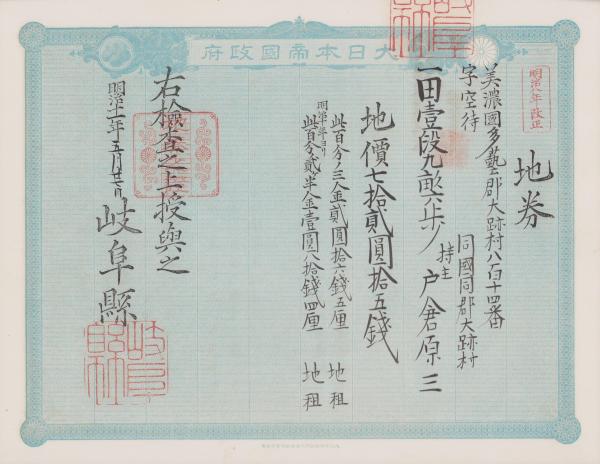 大日本帝國政府
明治八年改正
地券
美濃國多藝郡大跡村八百十四番
字空待
同國同郡大跡村
一田壹段九畝六歩
持主 戸倉原三
地價七拾貳圓拾五錢
此百分ノ三金貳圓拾六錢五厘 地租
明治十年ヨリ
此百分貳半金壹圓八拾錢四厘 地租
右檢査之上授與之
明治十一年五月廿七日
岐阜縣